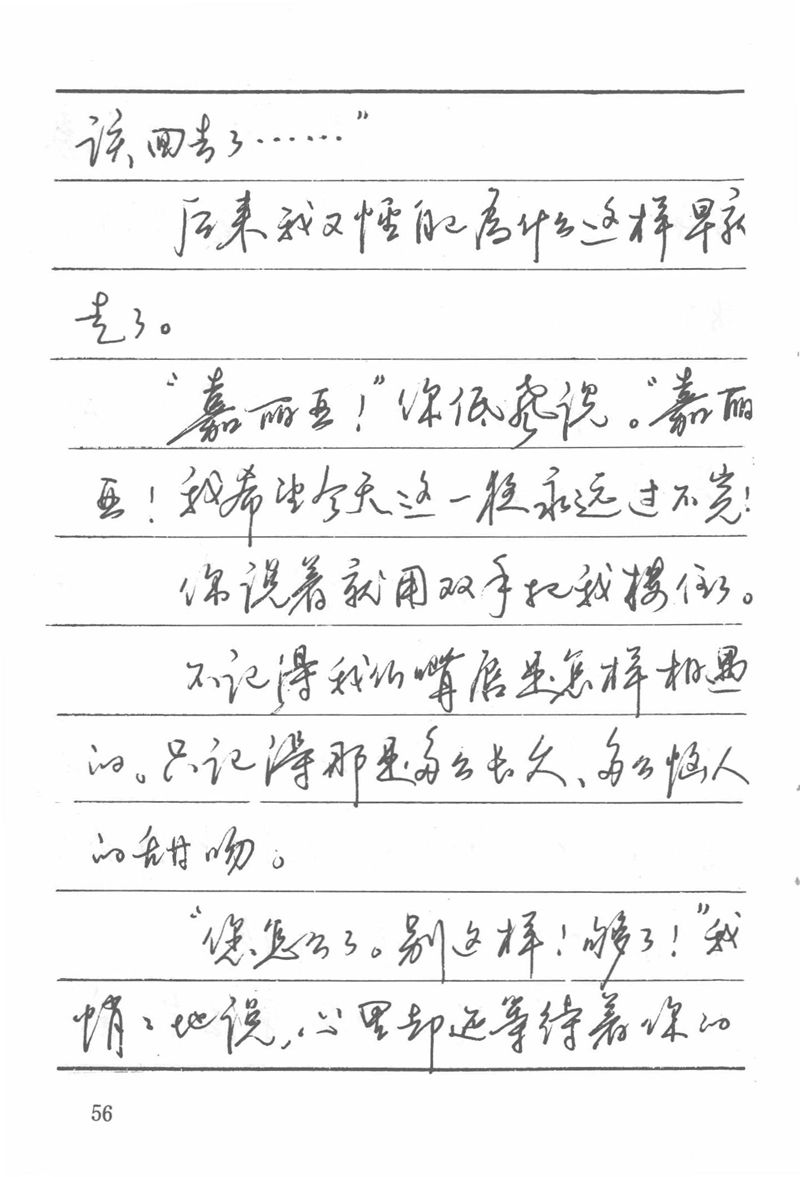 该回去了……”
后来我又怪自己为什么这样早就
走了。
“嘉丽亚！”你低声说。“嘉丽
亚！我希望今天这一程永远过不完！
你说着就用双手把我搂住。
不记得我们嘴唇是怎样相遇
的。只记得那是多么长久、多么恼人
的甜吻。
“您怎么了。别这样！够了！”我
悄悄地说，心里却还等待着你的
56